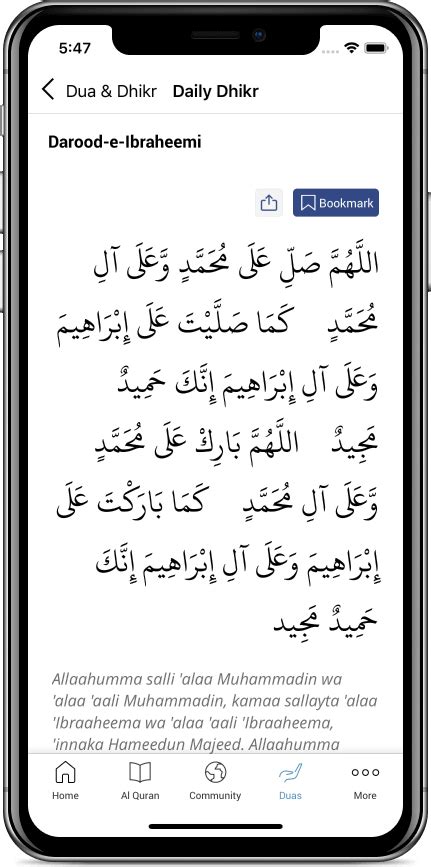 5:47
Dua & Dhikr Daily Dhikr
Darood-e-Ibraheemi
Bookmark
اللَّهُمَّ صَلِّ عَلَى مُحَمَّدٍ وَّعَلَى آلِ
مُحَمَّدٍ كَمَا صَلَّيْتَ عَلَى إِبْرَاهِيمَ
وَعَلَى آلِ إِبْرَاهِيمَ إِنَّكَ حَمِيدٌ
مَجِيدٌ اللَّهُمَّ بَارِكْ عَلَى مُحَمَّدٍ
وَّعَلَى آلِ مُحَمَّدٍ كَمَا بَارَكْتَ عَلَى
إِبْرَاهِيمَ وَعَلَى آلِ إِبْرَاهِيمَ إِنَّكَ
حَمِيدٌ مَجِيد
Allaahumma salli 'alaa Muhammadin wa
'alaa 'aali Muhammadin, kamaa sallayta 'alaa
'Ibraaheema wa 'alaa 'aali 'Ibraaheema,
'innaka Hameedun Majeed. Allaahumma
Home Al Quran Community Duas More